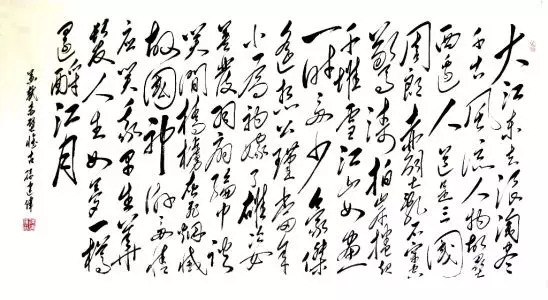 大江东去浪淘尽
千古风流人物故垒
西边人道是三国
周郎赤壁乱石穿空
惊涛拍岸捲起
千堆雪江山如画
一时多少豪傑
遥想公瑾当年
小乔初嫁了雄姿
英发羽扇纶巾谈
笑间樯橹灰飞烟灭
故國神游多情
应笑我早生华
发人生如梦一樽
还酹江月
苏轼赤壁怀古